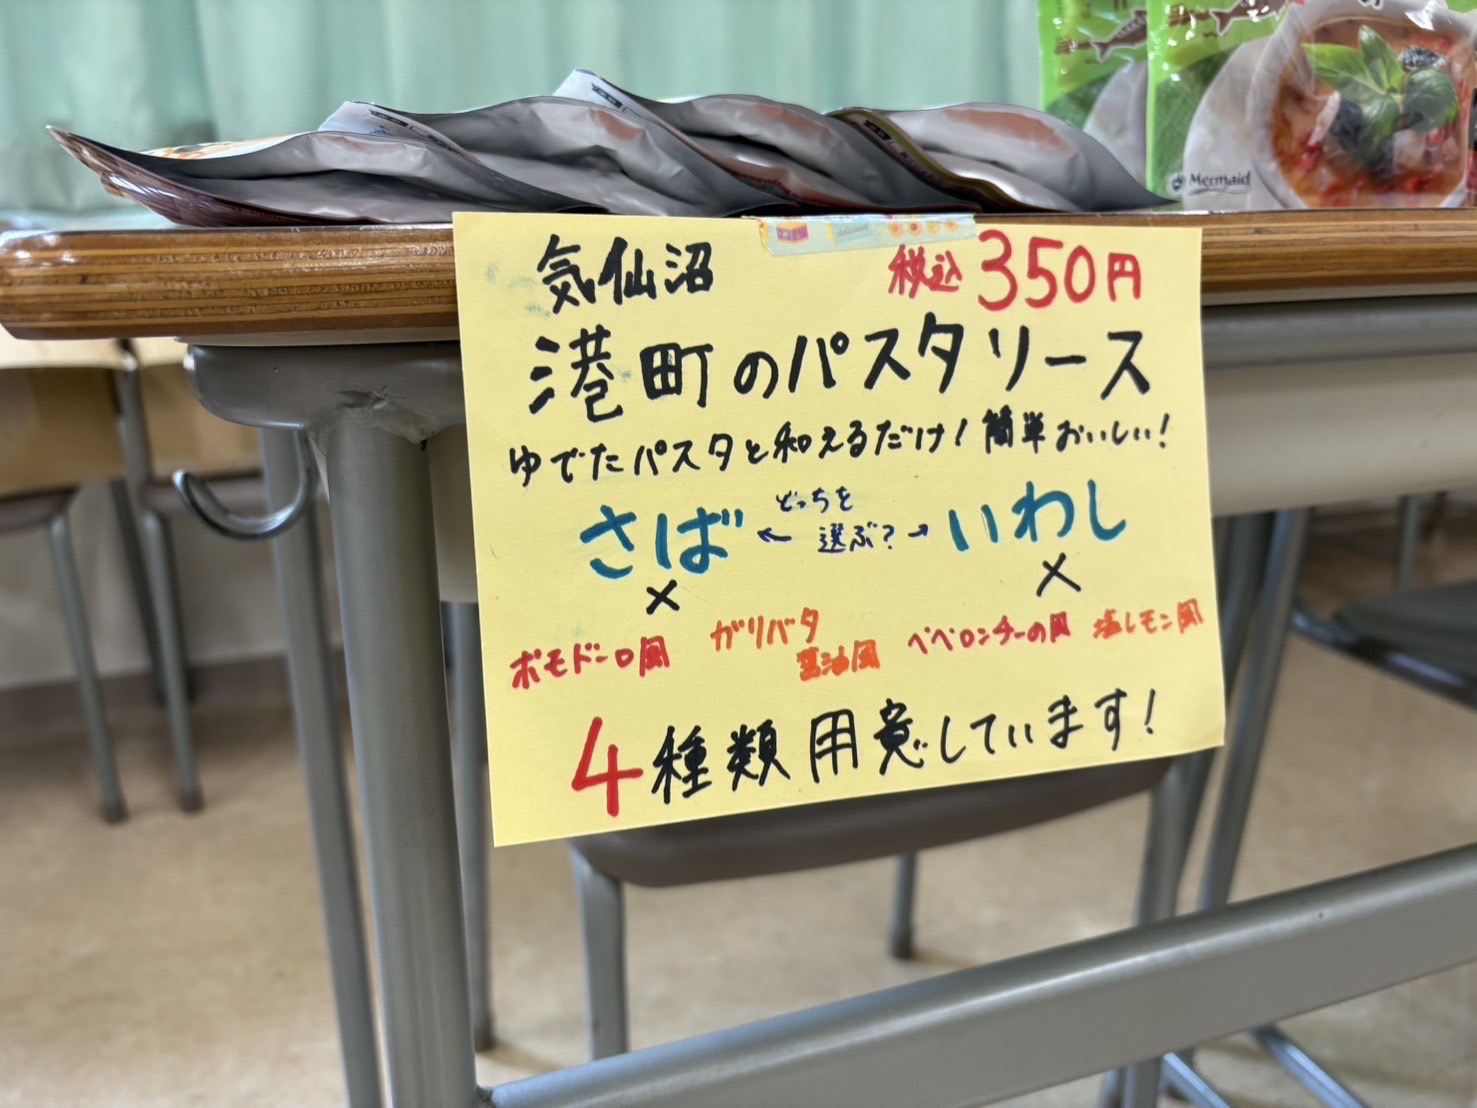 気仙沼 税込350円
港町のパスタソース
ゆでたパスタと和えるだけ！簡単おいしい！
さば ← どっちを選ぶ？ → いわし
× ×
ポモドーロ風 ガリバタ醤油風 ペペロンチーの風 塩レモン風
4種類用意しています！
Mermaid